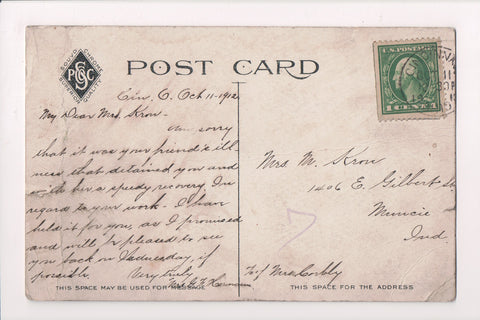 POST CARD
Cin, O. Oct 11-1912
My Dear Mrs. Krou -
am sorry
that it was your friend's ill-
ness that detained you and
wish her a speedy recovery. In
regard to your work - I have
held it for you, as I promised
and will be pleased to see
you back on Wednesday, if
possible. Very truly
Mrs.
THIS SPACE MAY BE USED FOR MESSAGE
U.S. POSTAGE
1 CENT 1
Mrs. M. Krou
1406 E. Gilbert St
Muncie
Ind.
THIS SPACE IS FOR THE ADDRESS